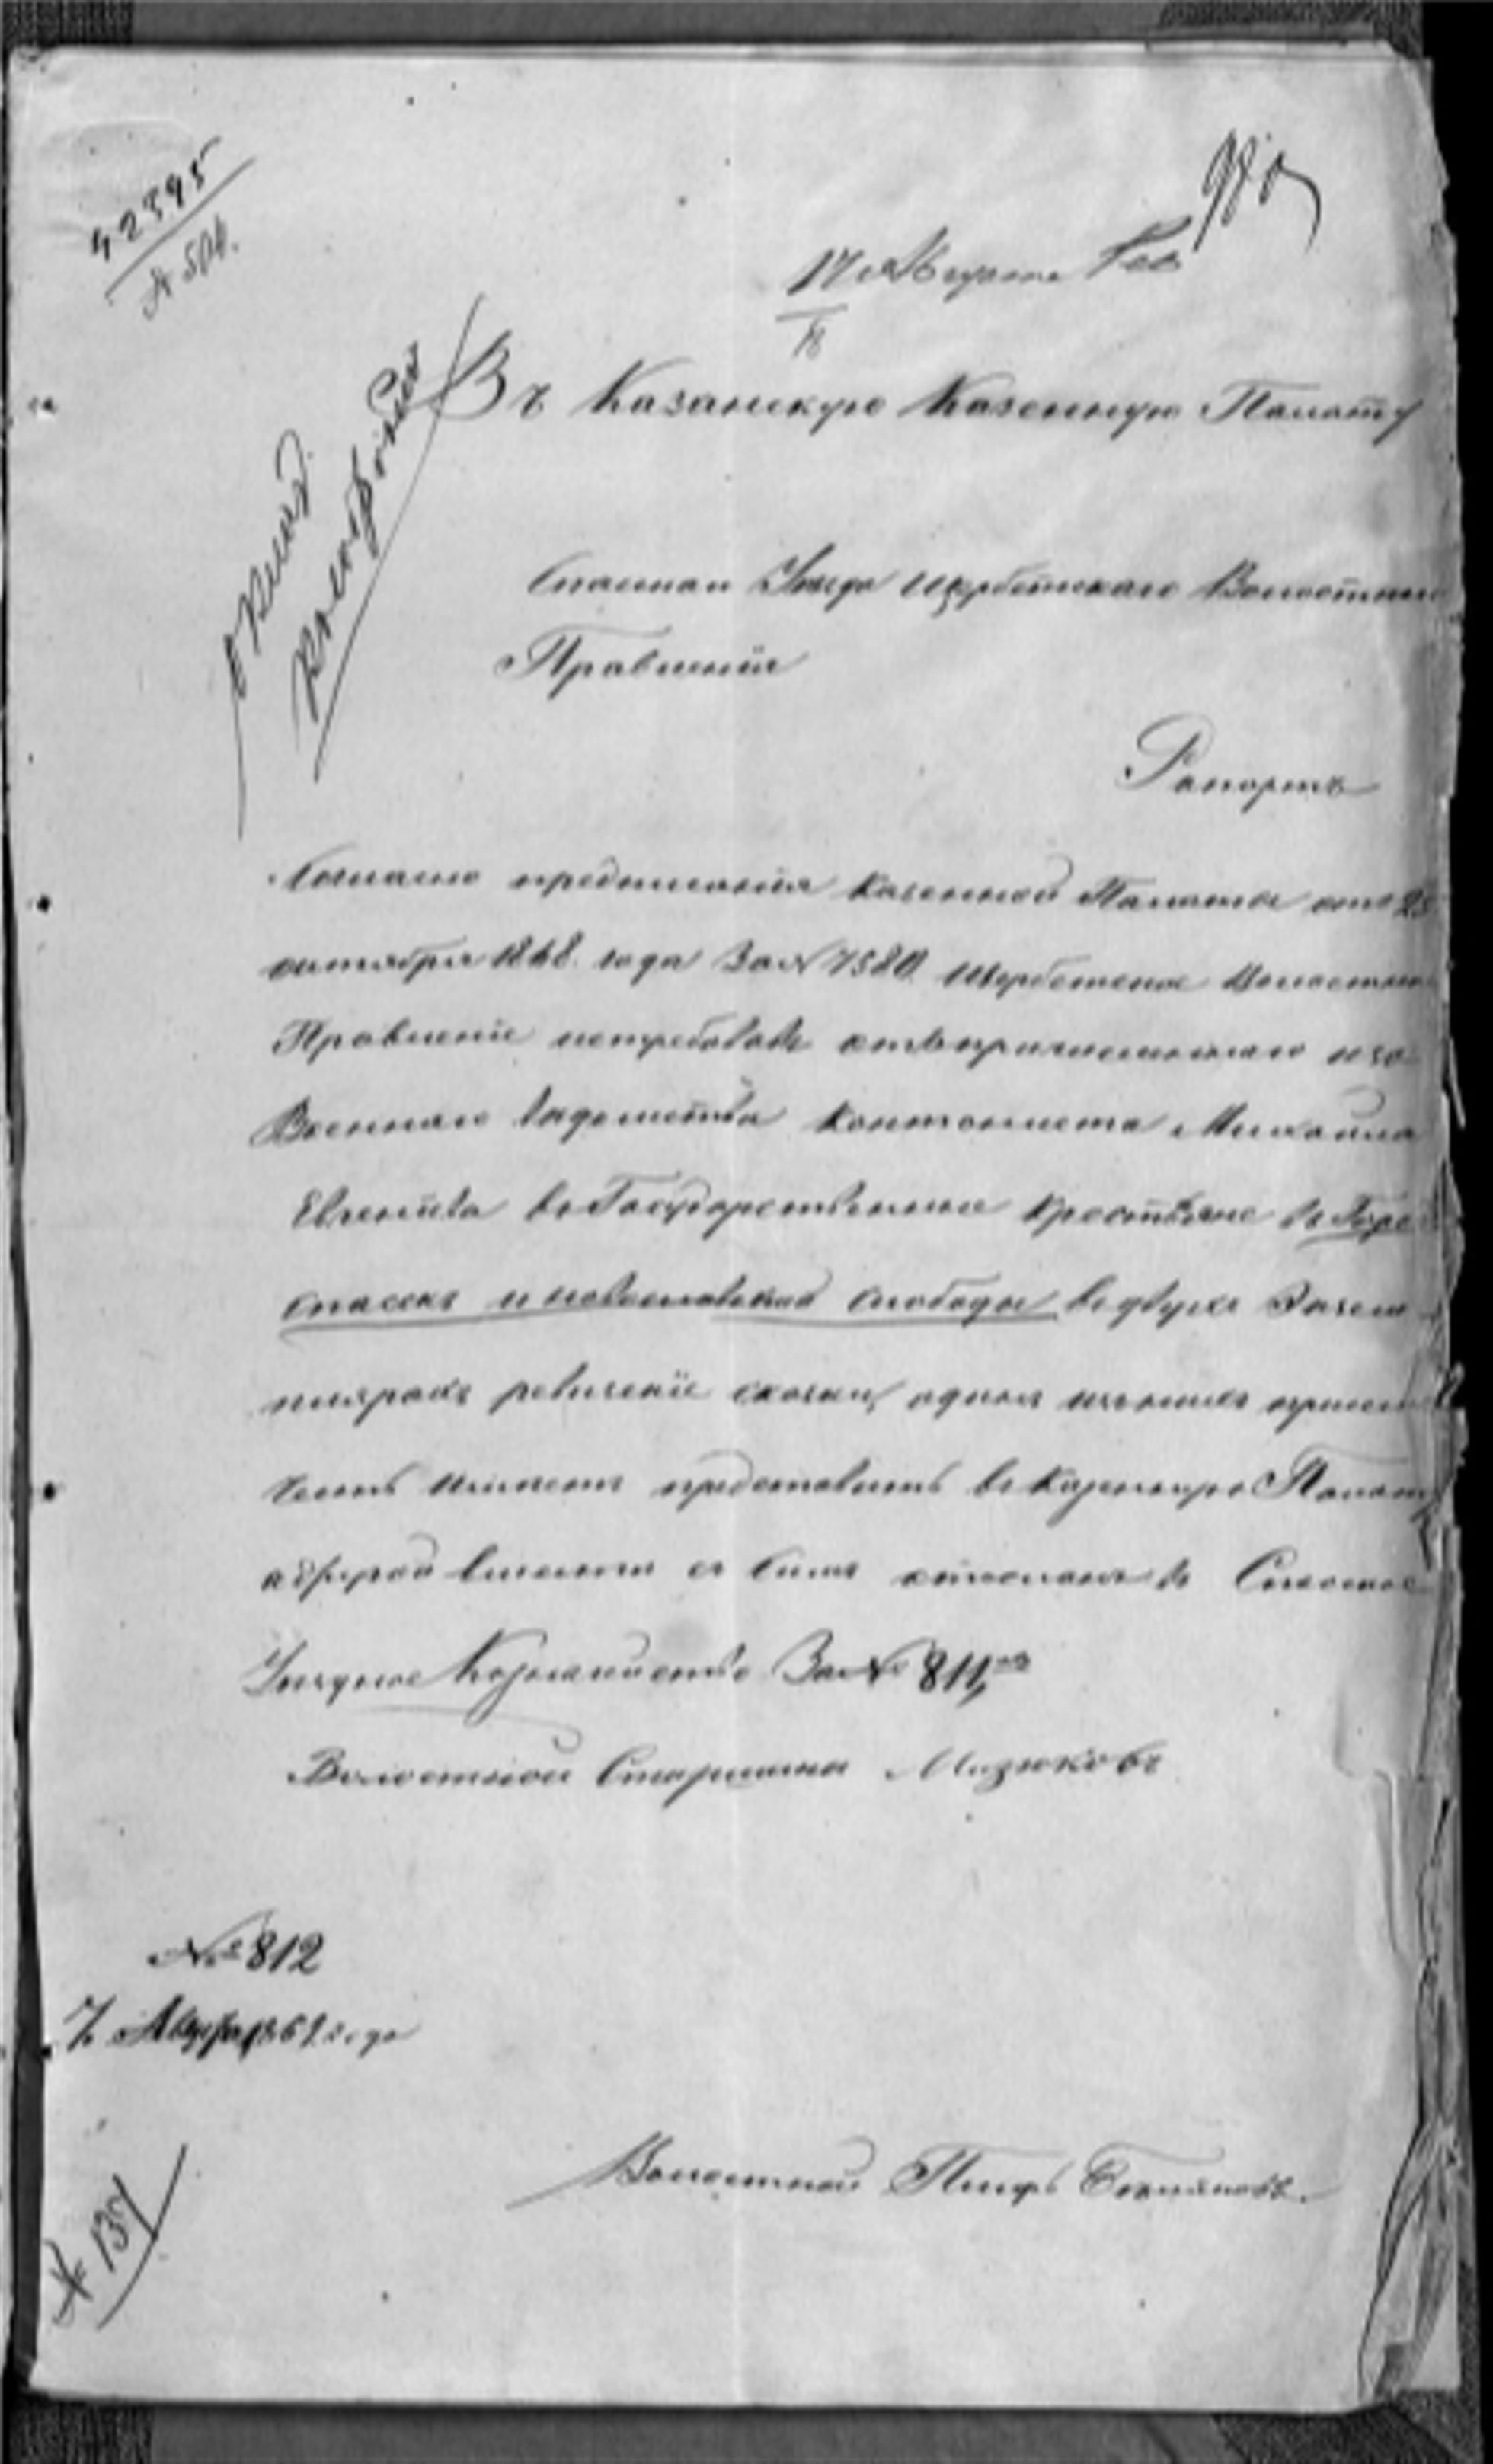 42395
№ 504.
17 Августа
Въ Казанскую Казенную Палату
Спаскаго Уезда Щербетскаго Волостнаго
Правленія
Рапортъ
Согласно предписанія Казенной Палаты отъ 25
октября 1868 года За № 7580 Щербетское Волостное
Правленіе истребовавъ отъ причисленнаго изъ
Военнаго Ведомства Кантониста Михаила
Евгеніева въ Государственные крестьяне въ Горо
Спасскъ и слободы въ двухъ Экзем
плярахъ ревизскіе сказки, одинъ изъ нихъ при сем
честь имеетъ представить въ Казенную Палату
а другой вместе съ симъ отосланъ въ Спаское
Уездное Казначейство За № 811,мъ
Волостной Старшина Мизюковъ
№ 812
7 Августа 1869 года
Волостной Писарь
№ 137